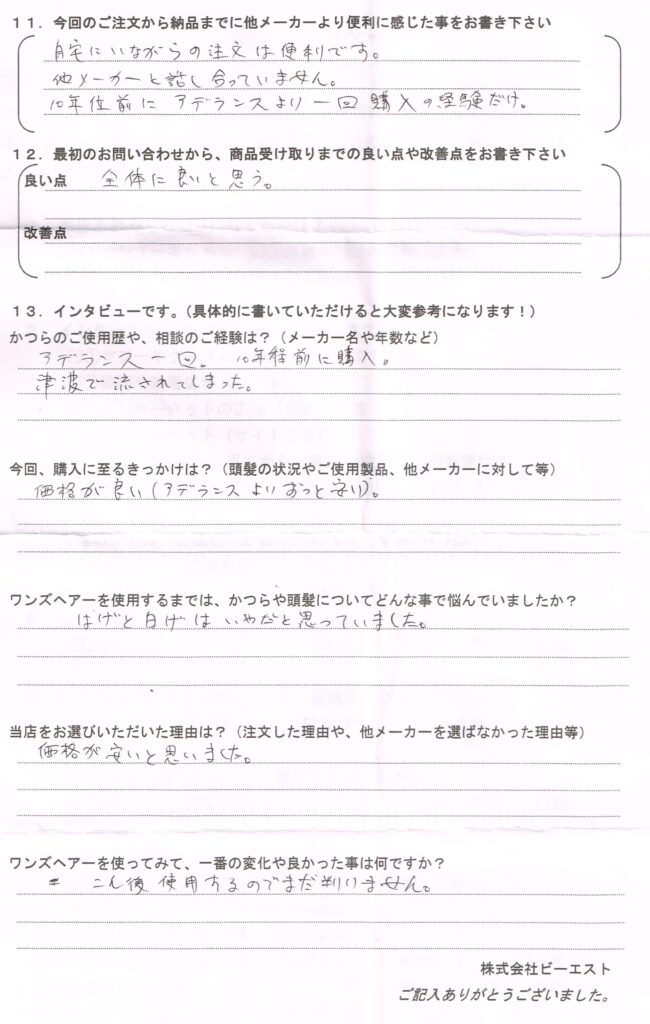 １１．今回のご注文から納品までに他メーカーより便利に感じた事をお書き下さい
自宅にいながらの注文は便利です。
他メーカーと話し合っていません。
10年位前にアデランスより一回購入の経験だけ。
１２．最初のお問い合わせから、商品受け取りまでの良い点や改善点をお書き下さい
良い点 全体に良いと思う。
改善点
１３．インタビューです。（具体的に書いていただけると大変参考になります！）
かつらのご使用歴や、相談のご経験は？（メーカー名や年数など）
アデランス一回。10年程前に購入。
津波で流されてしまった。
今回、購入に至るきっかけは？（頭髪の状況やご使用製品、他メーカーに対して等）
価格が良い（アデランスよりずっと安い）。
ワンズヘアーを使用するまでは、かつらや頭髪についてどんな事で悩んでいましたか？
はげと白げはいやだと思っていました。
当店をお選びいただいた理由は？（注文した理由や、他メーカーを選ばなかった理由等）
価格が安いと思いました。
ワンズヘアーを使ってみて、一番の変化や良かった事は何ですか？
こん後使用するのでまだ判りません。
株式会社ビーエスト
ご記入ありがとうございました。